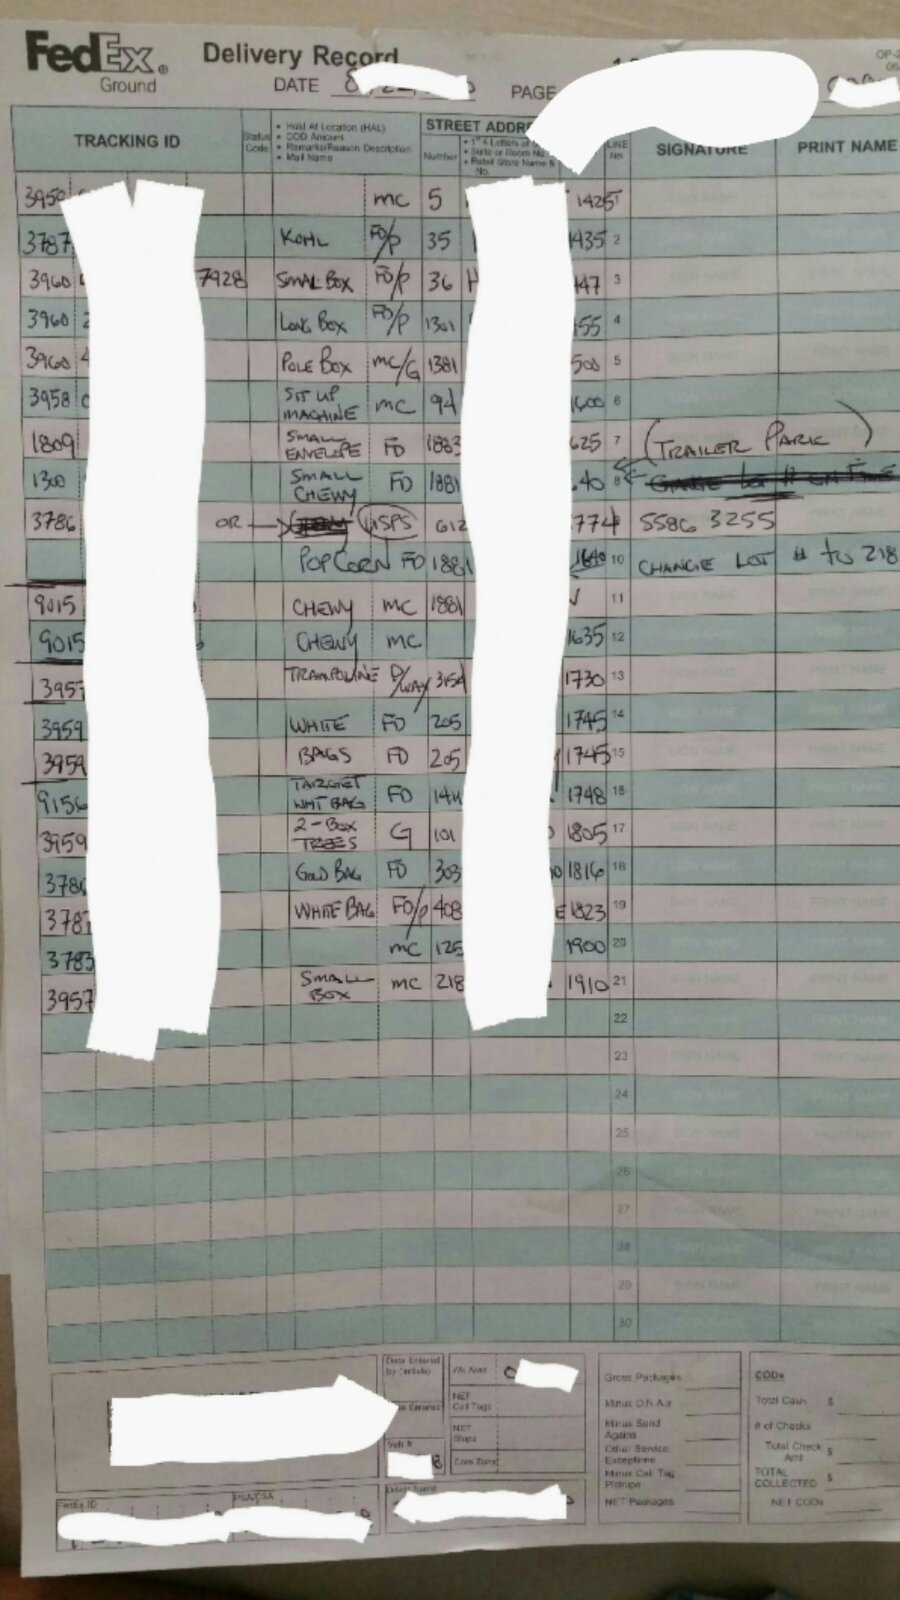 FedEx®
Ground
Delivery Record
DATE
PAGE
TRACKING ID
Status Code
• Hold At Location (HAL)
• COD Amount
• Remarks/Reason Description
• Mail Name
STREET ADDR
Number
• Suite or Room No.
• Retail Store Name &
No.
LINE No
SIGNATURE
PRINT NAME
3959 mc 5 1425
3787 KOHL FD/P 35 1435 2
3960 7928 SMALL BOX FD/P 36 H 447 3
3960 2 LONG BOX FD/P 1301 455 4
3960 4 POLE BOX MC/G 1381 500 5
3958 SIT UP MACHINE MC 94 1600 6
1809 SMALL ENVELOPE FD 1883 625 7 (TRAILER PARK)
1300 SMALL CHEWY FD 1881 40 8
3786 OR → USPS 612 774 5586 3255
POPCORN FD 1881 1640 10 CHANGE LOT # to 218
9015 CHEWY MC 1881 11
9015 CHEWY MC 1635 12
3957 TRAMPOLINE D/WAY 3154 1730 13
3959 WHITE FD 205 1745 14
3959 BAGS FD 205 1745 15
9156 TARGET WHT BAG FD 1411 1748 16
3959 2-BOX TREES G 101 1805 17
3786 GOLD BAG FD 303 1816 18
3787 WHITE BAG FD/P 408 E 1823 19
3783 MC 125 1900 20
3957 SMALL BOX MC 218 1910 21
22
23
24
25
26
27
28
29
30
Data Entered by (initials)
Veh #
8
Wk Area
NET Call Tags
NET Stops
Core Zone
Gross Packages
Minus D.N.A.s
Minus Send Agains
Other Service Exceptions
Minus Call Tag Pickups
NET Packages
CODs
Total Cash $
# of Checks
Total Check Amt $
TOTAL COLLECTED $
NET CODs
FedEx ID
Driver Name